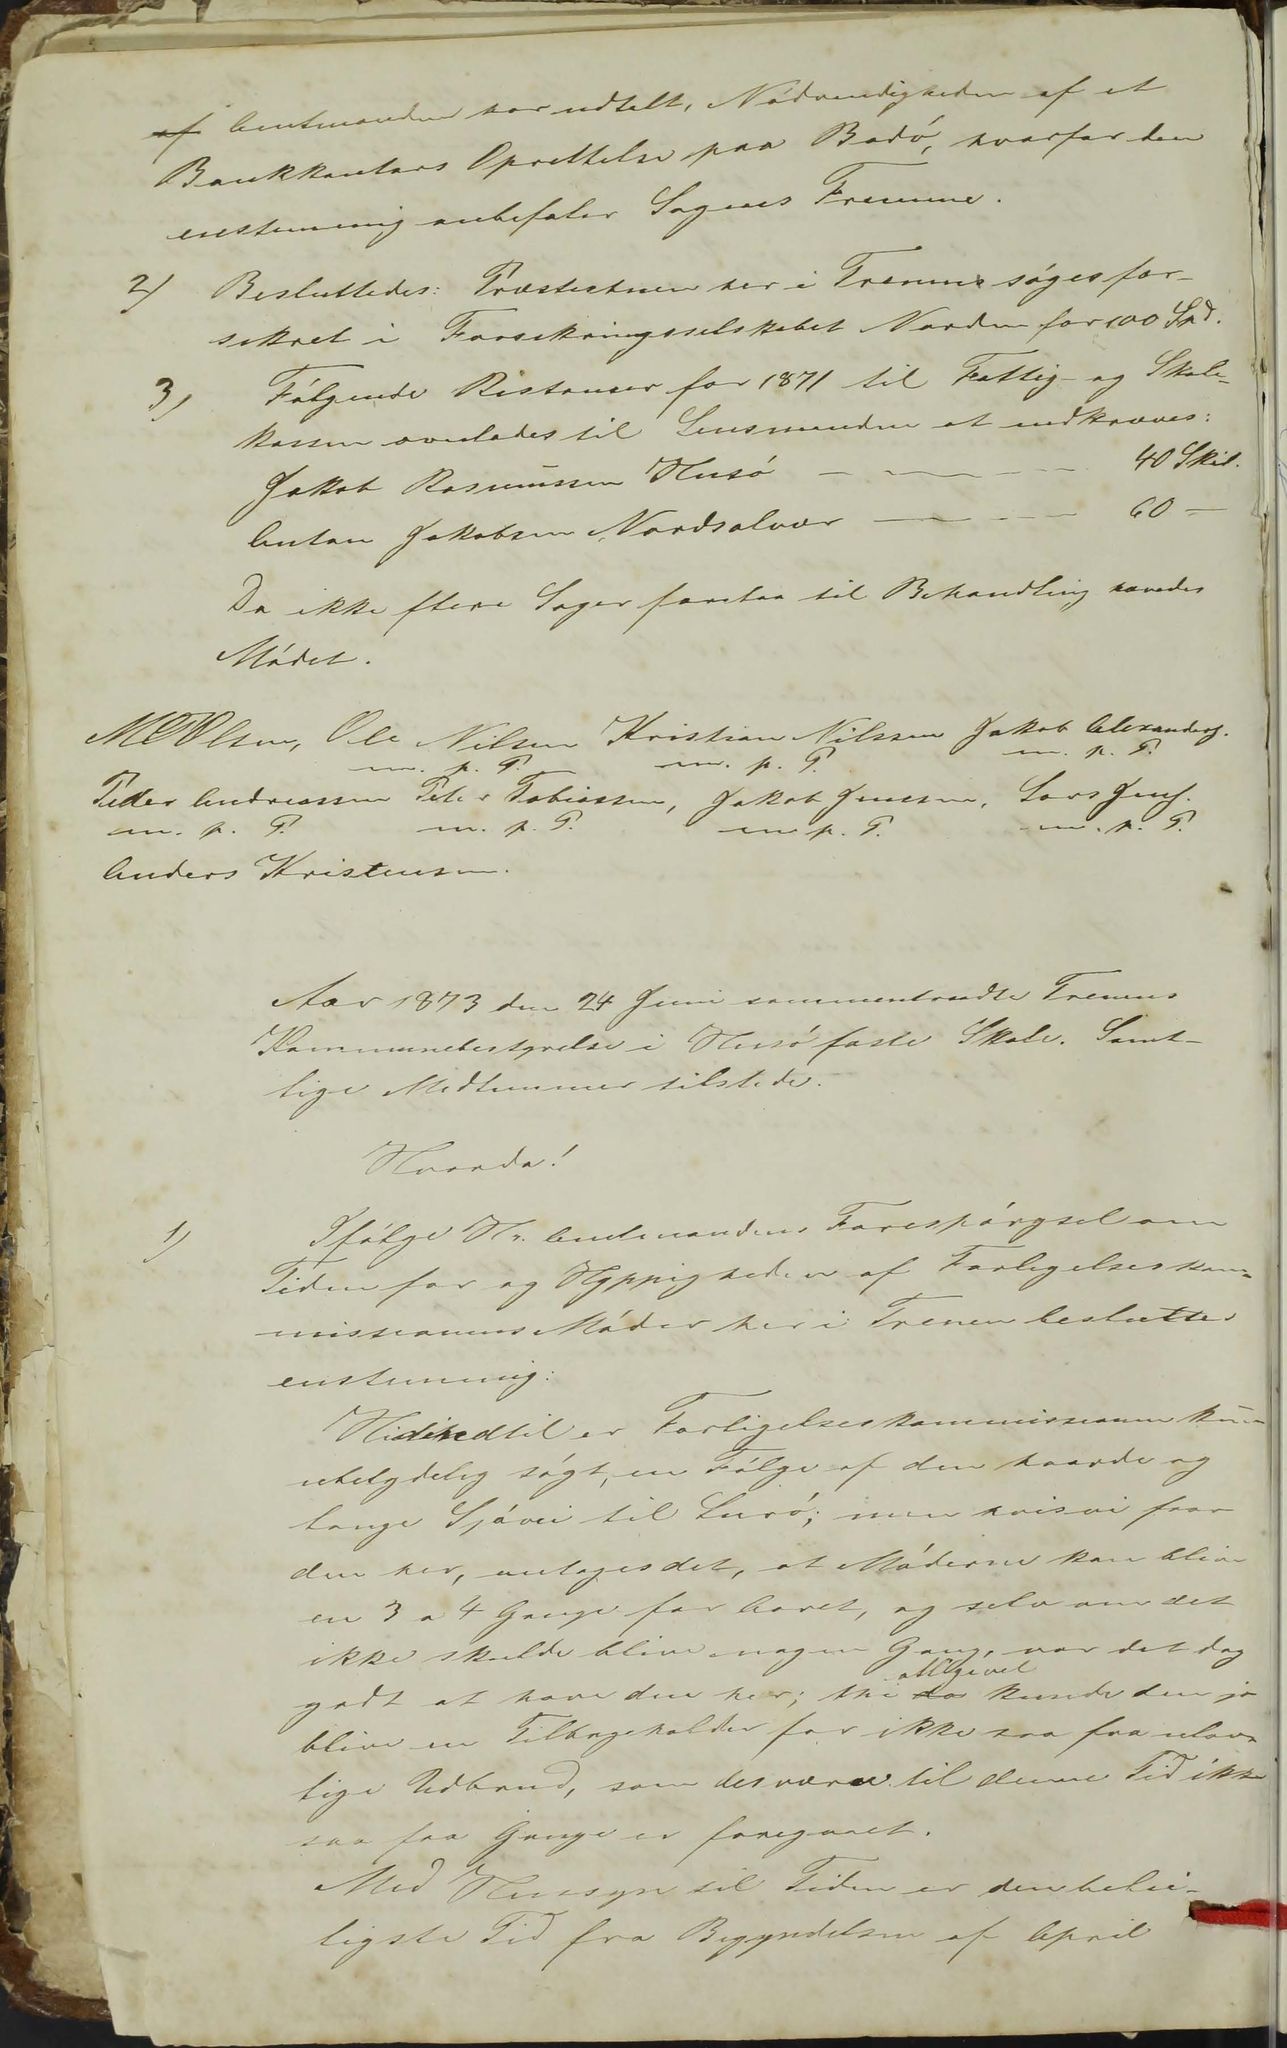 af Amtmanden har udtalt, Nödvendigheden af et
Bankkontors Oprettelse paa Bodö, hvorfor den
enstemmig anbefaler Sagens Fremme.
2) Besluttedes: Præstestuen her i Trænen söges for-
sikret i Forsikringsselskabet Norden for 100 Spd.
3) Fölgende Restanser for 1871 til Fattig- og Skole-
kassen overlades til Lensmanden at indkræves:
Jakob Rasmussen Husö — — — 40 Skil.
Anton Jakobsen Nordsolvær — — — 60 —
Da ikke flere Sager forelaa til Behandling hævedes
Mödet.
M Olsen, Ole Nilsen Kristian Nilssen Jakob Alexanders.
m. p. P. m. p. P. m. p. P.
Peder Andreassen Peter Tobiassen, Jakob Jensen, Lars Jens.
m. p. P. m. p. P. m. p. P. m. p. P.
Anders Kristensen.
Aar 1873 den 24 Juni sammentraadte Trænens
Kommunebestyrelse i Husö faste Skole. Samt-
lige Medlemmer tilstede.
Hvorda!
1) Ifölge Hr. Amtmandens Forespörgsel om
Tiden for og Hyppigheden af Forligelseskom-
missionens Möder her i Trænen besluttes
enstemmig:
Hidindtil er Forligelseskommissionen kun
ubetydelig sögt, en Fölge af den haarde og
lange Sjövei til Lurö; men hvis vi faar
den her, antages det, at Möderne kan blive
en 3 a 4 Gange for Aaret, og selv om det
ikke skulde blive nogen Gang, var det dog
godt at have den her; thi da alligevel kunde den jo
blive en Tilbageholder for ikke saa faa ulov-
lige Udbrud, som desværre til denne Tid ikke
saa faa Gange er foregaaet.
Med Hensyn til Tiden er den belei-
ligste Tid fra Begyndelsen af April